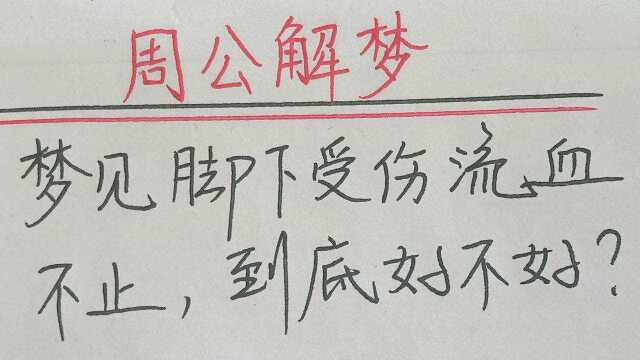 周公解梦
梦见脚下受伤流血
不止，到底好不好？